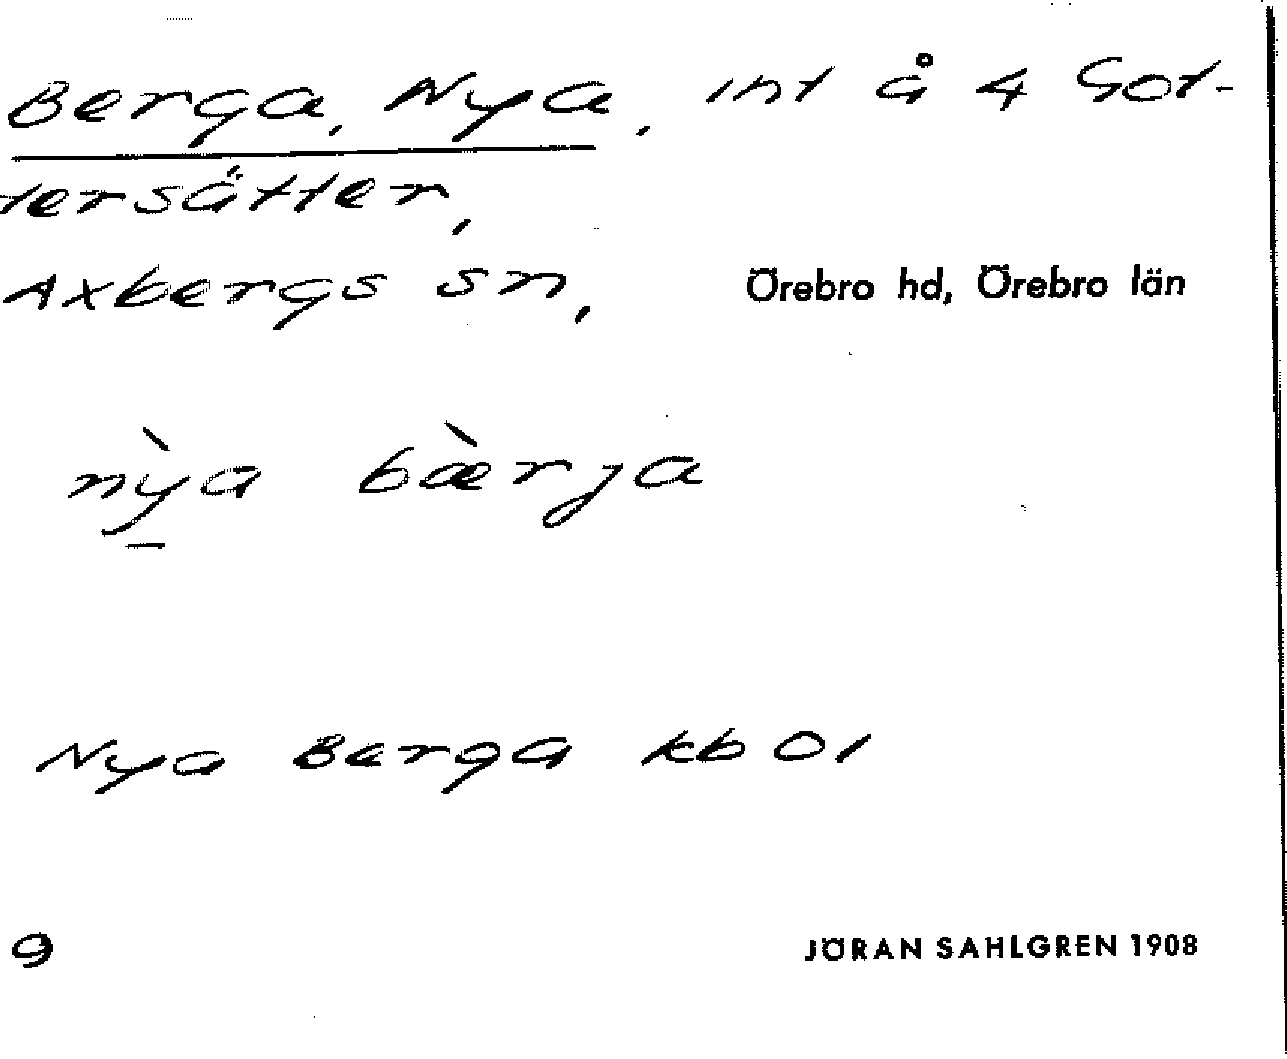 Berga, Nya, int å 4 Got-
tersätter,
Axbergs sn, Örebro hd, Örebro län
nỳa bæ̀rja
Nya Berga kb 01
9 JÖRAN SAHLGREN 1908